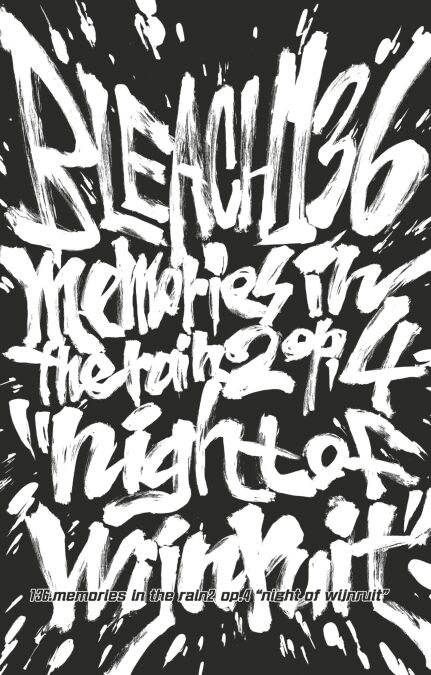 BLEACH 136
memories in
the rain2 op.4
"night of
wijnruit"
136.memories in the rain2 op.4 "night of wijnruit"